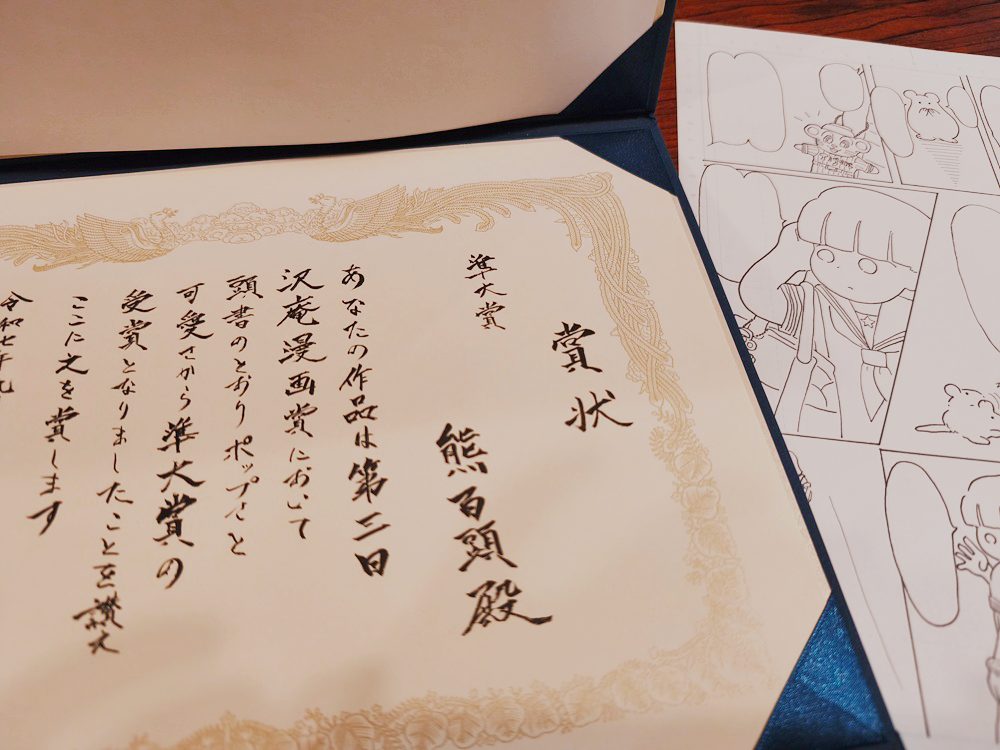 賞状
準大賞
熊百頭殿
あなたの作品は第二回
沢庵漫画賞において
頭書のとおりポップさと
可愛さから準大賞の
受賞となりましたことを讃え
ここに之を賞します
令和七年九